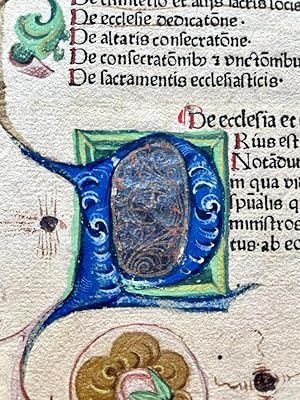 De cimiterio et aliis sacris locis
De ecclesie dedicatōne.
De altaris consecratōne.
De consecratōnibꝰ ⁊ vnctōnibu
De sacramentis ecclesiasticis.
De ecclesia et
P
Rius est
Notādu
m qua vi
spūalis q
ministros
tus·ab ec